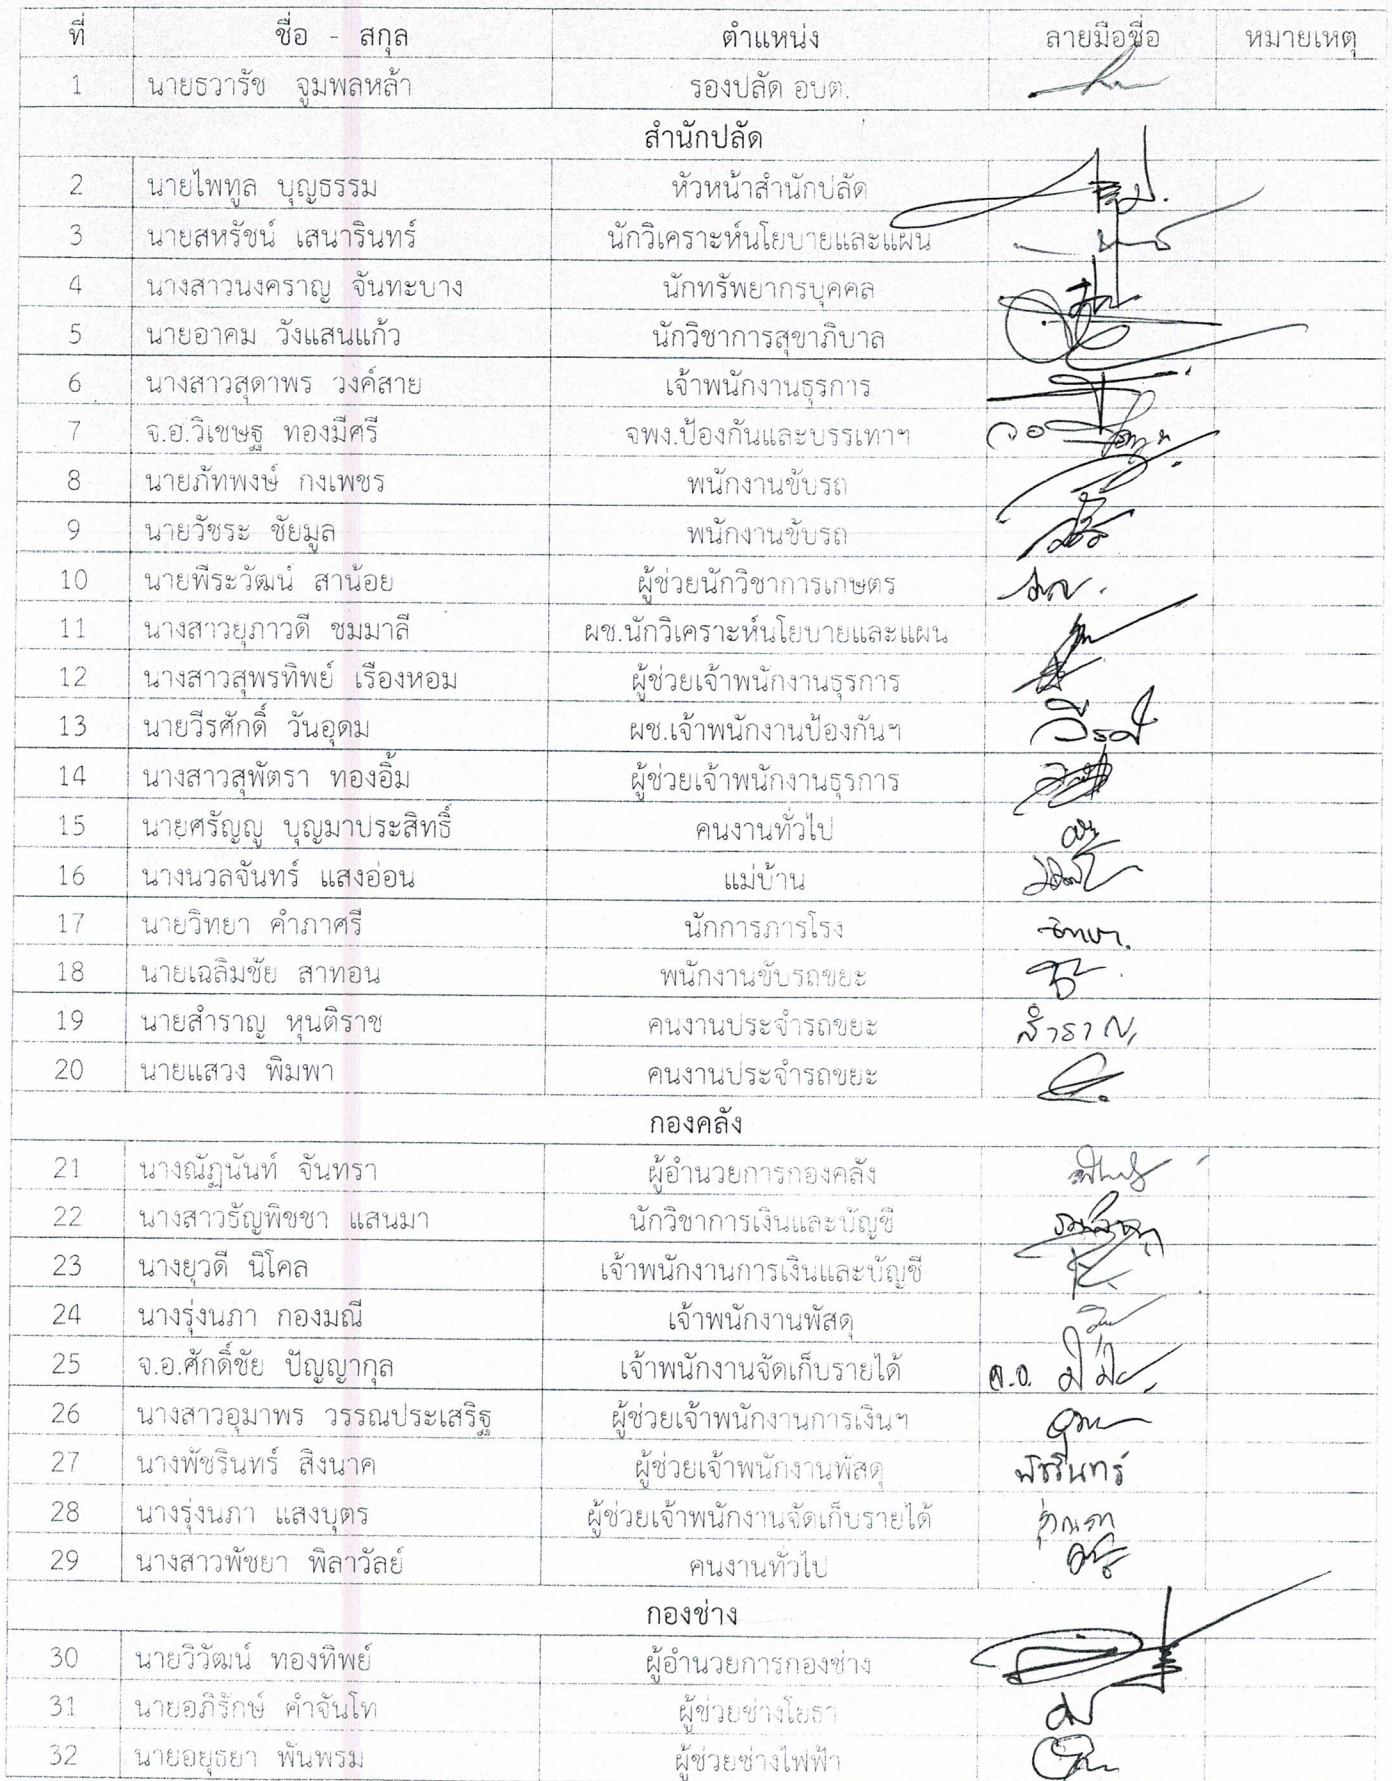 ที่ ชื่อ - สกุล ตำแหน่ง ลายมือชื่อ หมายเหตุ
1 นายธวารัช จูมพลหล้า รองปลัด อบต.
สำนักปลัด
2 นายไพทูล บุญธรรม หัวหน้าสำนักปลัด
3 นายสหรัชน์ เสนารินทร์ นักวิเคราะห์นโยบายและแผน
4 นางสาวนงคราญ จันทะบาง นักทรัพยากรบุคคล
5 นายอาคม วังแสนแก้ว นักวิชาการสุขาภิบาล
6 นางสาวสุดาพร วงค์สาย เจ้าพนักงานธุรการ
7 จ.อ.วิเชษฐ ทองมีศรี จพง.ป้องกันและบรรเทาฯ
8 นายภัทพงษ์ กงเพชร พนักงานขับรถ
9 นายวัชระ ชัยมูล พนักงานขับรถ
10 นายพีระวัฒน์ สาน้อย ผู้ช่วยนักวิชาการเกษตร
11 นางสาวยุภาวดี ชมมาลี ผช.นักวิเคราะห์นโยบายและแผน
12 นางสาวสุพรทิพย์ เรืองหอม ผู้ช่วยเจ้าพนักงานธุรการ
13 นายวีรศักดิ์ วันอุดม ผช.เจ้าพนักงานป้องกันฯ
14 นางสาวสุพัตรา ทองอิ้ม ผู้ช่วยเจ้าพนักงานธุรการ
15 นายศรัญญู บุญมาประสิทธิ์ คนงานทั่วไป
16 นางนวลจันทร์ แสงอ่อน แม่บ้าน
17 นายวิทยา คำภาศรี นักการภารโรง วิทยา
18 นายเฉลิมชัย สาทอน พนักงานขับรถขยะ
19 นายสำราญ หุนติราช คนงานประจำรถขยะ สำราญ
20 นายแสวง พิมพา คนงานประจำรถขยะ
กองคลัง
21 นางณัฏนันท์ จันทรา ผู้อำนวยการกองคลัง
22 นางสาวธัญพิชชา แสนมา นักวิชาการเงินและบัญชี
23 นางยุวดี นิโคล เจ้าพนักงานการเงินและบัญชี
24 นางรุ่งนภา กองมณี เจ้าพนักงานพัสดุ
25 จ.อ.ศักดิ์ชัย ปัญญากุล เจ้าพนักงานจัดเก็บรายได้ จ.อ.
26 นางสาวอุมาพร วรรณประเสริฐ ผู้ช่วยเจ้าพนักงานการเงินฯ
27 นางพัชรินทร์ สิงนาค ผู้ช่วยเจ้าพนักงานพัสดุ พัชรินทร์
28 นางรุ่งนภา แสงบุตร ผู้ช่วยเจ้าพนักงานจัดเก็บรายได้
29 นางสาวพัชยา พิลาวัลย์ คนงานทั่วไป
กองช่าง
30 นายวิวัฒน์ ทองทิพย์ ผู้อำนวยการกองช่าง
31 นายอภิรักษ์ คำจันโท ผู้ช่วยช่างโยธา
32 นายอยุธยา พันพรม ผู้ช่วยช่างไฟฟ้า